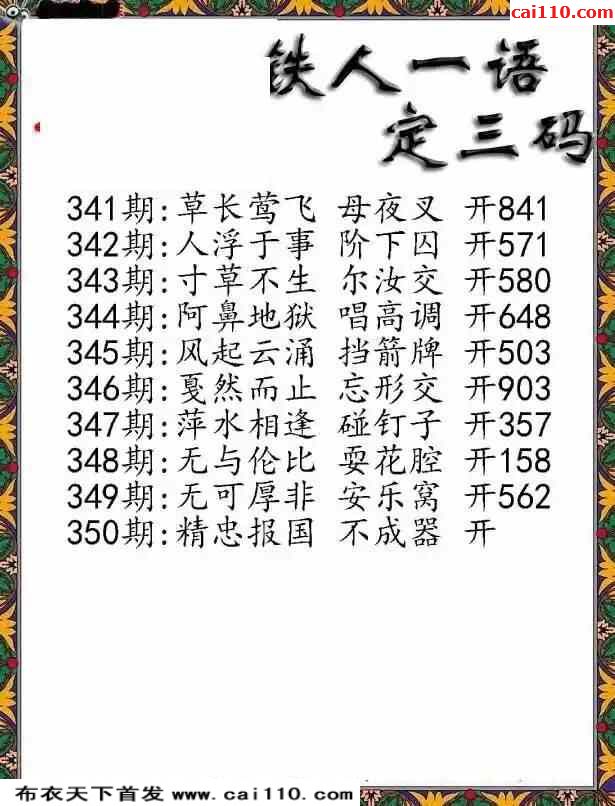 cai110.com
铁人一语
定三码
341期:草长莺飞 母夜叉 开841
342期:人浮于事 阶下囚 开571
343期:寸草不生 尔汝交 开580
344期:阿鼻地狱 唱高调 开648
345期:风起云涌 挡箭牌 开503
346期:戛然而止 忘形交 开903
347期:萍水相逢 碰钉子 开357
348期:无与伦比 耍花腔 开158
349期:无可厚非 安乐窝 开562
350期:精忠报国 不成器 开
布衣天下首发 www.cai110.com